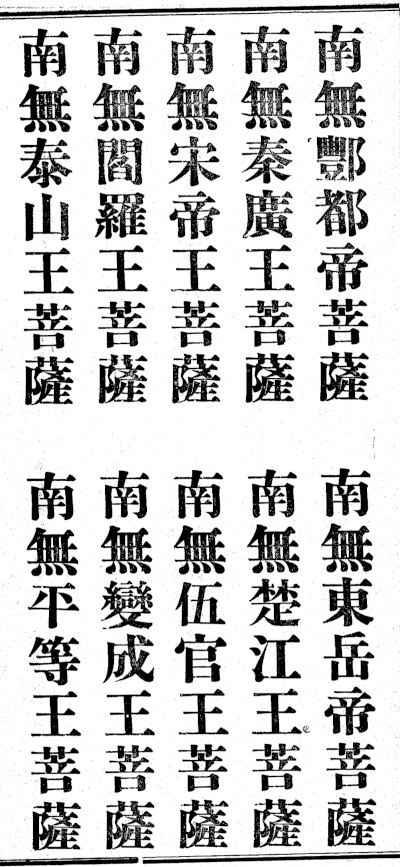 南無酆都帝菩薩
南無東岳帝菩薩
南無秦廣王菩薩
南無楚江王菩薩
南無宋帝王菩薩
南無伍官王菩薩
南無閻羅王菩薩
南無變成王菩薩
南無泰山王菩薩
南無平等王菩薩